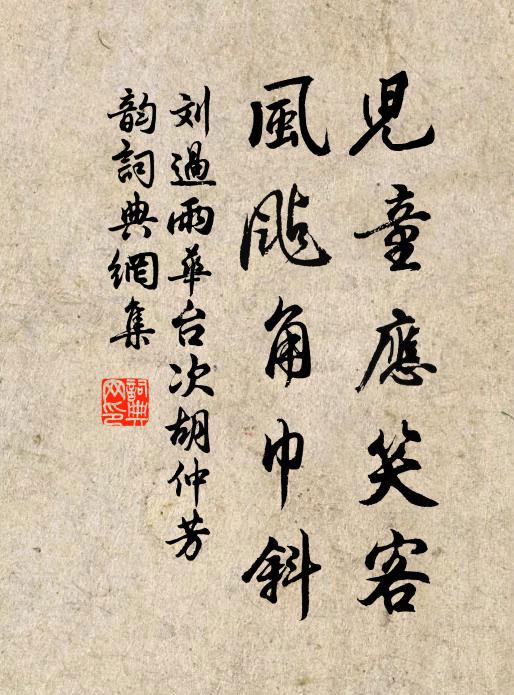 兒童應笑客
風颭角巾斜
刘過雨華台次胡仲芳
韵詞典網集
詞典网印